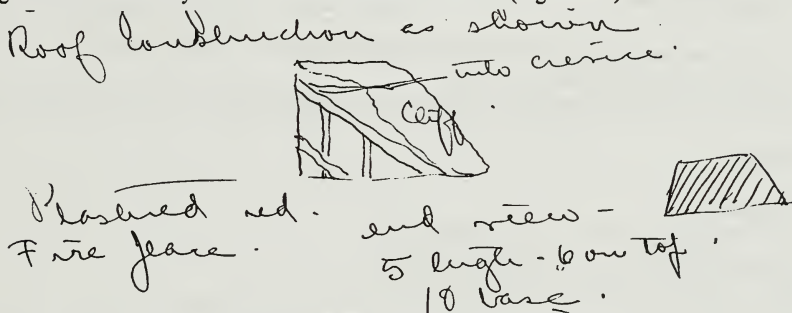 Roof Construction as shown
into crevice.
Cliff.
Plastered red.
Fire place.
end view -
5 length - 6 on top.
18 base.